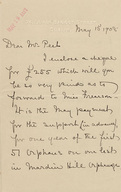 May 15 1908
Dear Mr. Peet
I enclose a cheque
for £255 which will you
be so very kind as to
forward to Miss
It is the May payment
for the support (in advance)
for one year of the first
51 Orphans on our list
in Mardin Hill Orphanage